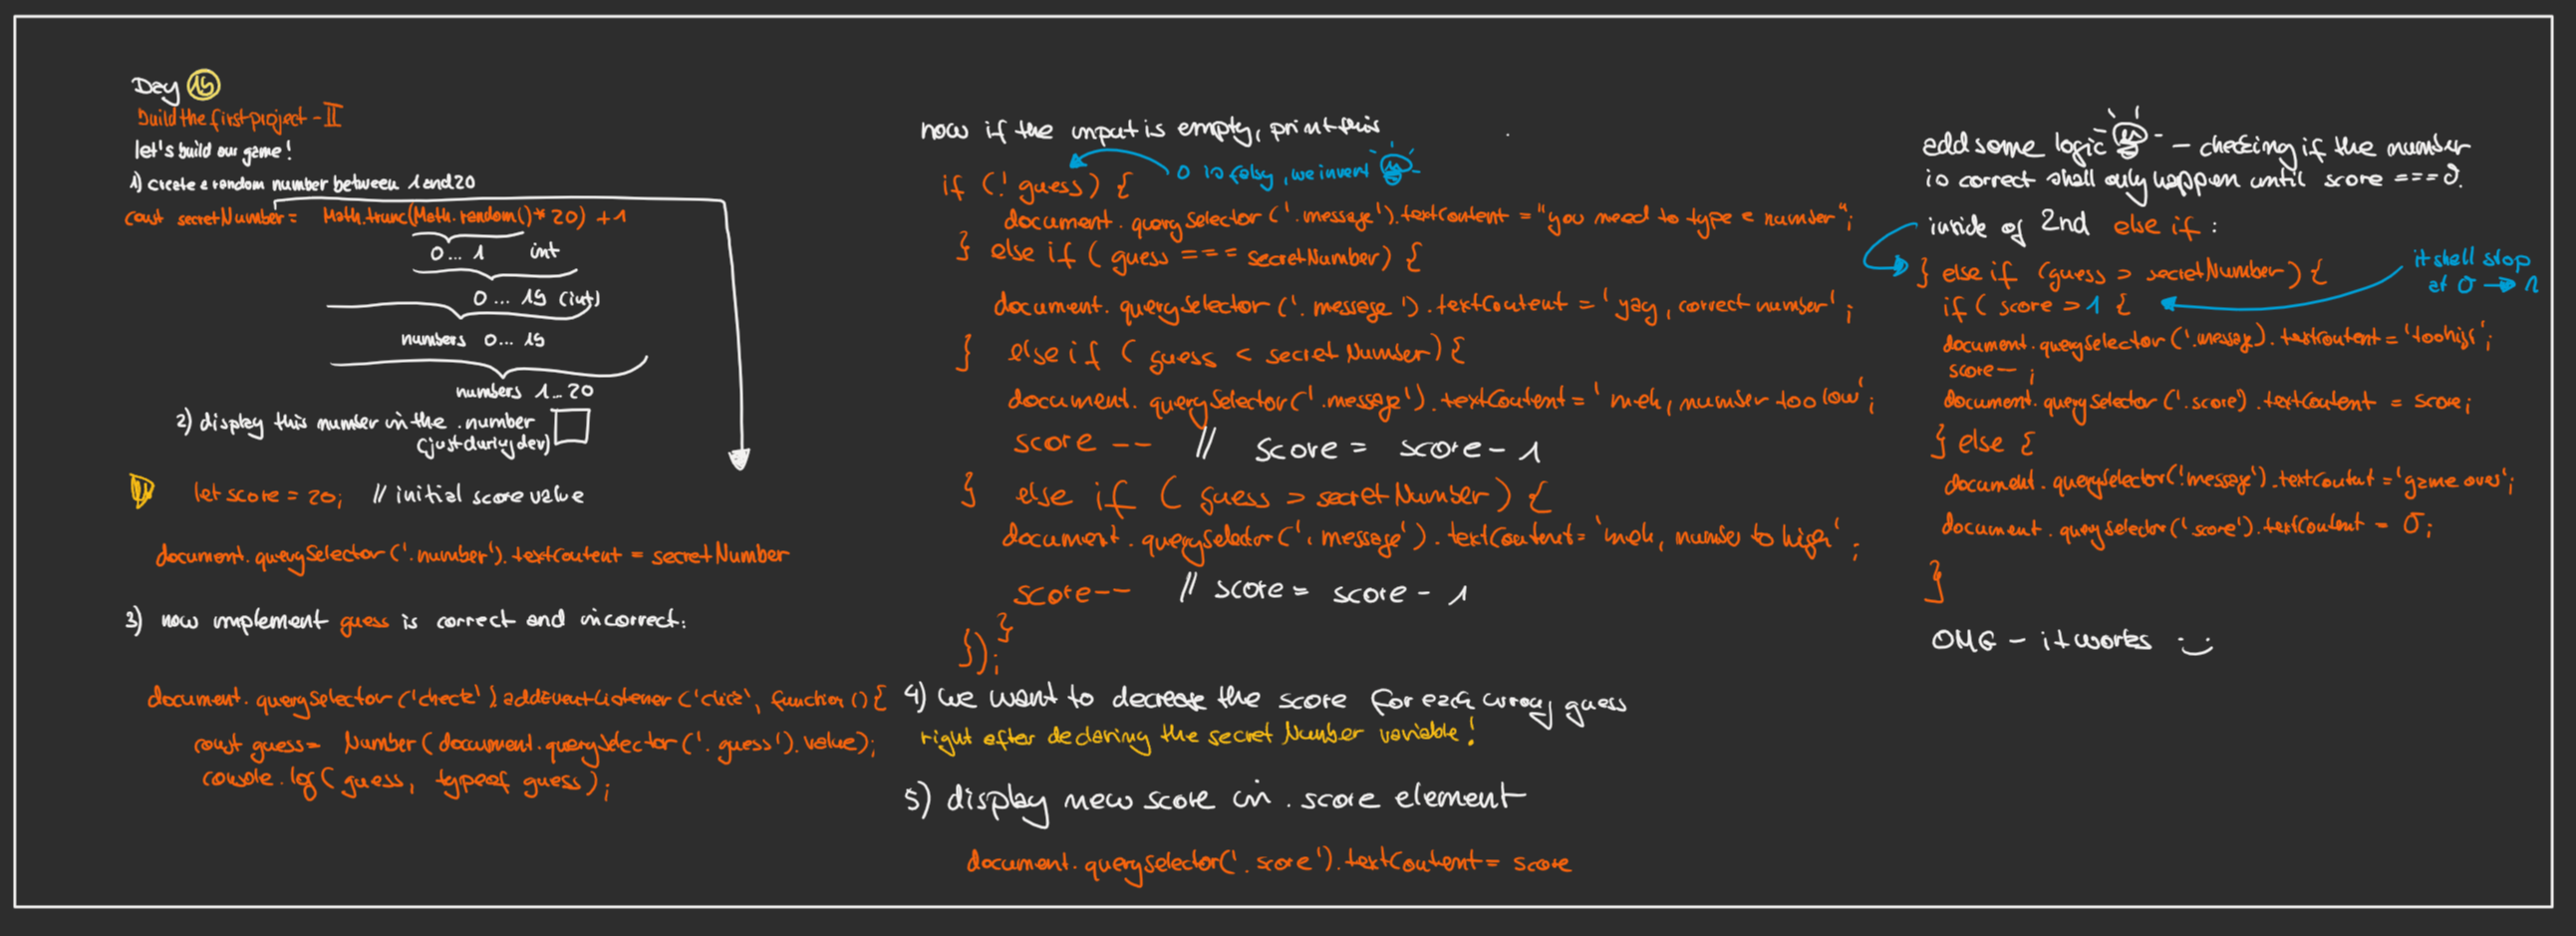 Day 19
build the first project - II
let's build our game!
1) create a random number between 1 and 20
const secretNumber = Math.trunc(Math.random()* 20) + 1
0... 1 int
0... 19 (int)
numbers 0... 19
numbers 1... 20
2) display this number in the .number
(just during dev)
let score = 20; // initial score value
document.querySelector('.number').textContent = secretNumber
3) now implement guess is correct and incorrect:
document.querySelector('check').addEventListener('click', function () {
const guess = Number(document.querySelector('.guess').value);
console.log(guess, typeof guess);
now if the input is empty, print this
0 is falsy, we invert
if (! guess) {
document.querySelector('.message').textContent = "you need to type a number";
} else if ( guess === secretNumber) {
document.querySelector('.message').textContent = 'yay, correct number';
} else if ( guess < secretNumber) {
document.querySelector('.message').textContent = 'meh, number too low';
score -- // score = score - 1
} else if ( guess > secretNumber) {
document.querySelector('.message').textContent = 'meh, number to high';
score-- // score = score - 1
}
});
4) we want to decrease the score for each wrong guess
right after declaring the secret Number variable!
5) display new score in .score element
document.querySelector('.score').textContent = score
add some logic - checking if the number
is correct shall only happen until score === 0.
inside of 2nd else if :
} else if (guess > secretNumber) {
it shall stop
at 0 → 1
if ( score > 1 {
document.querySelector('.message).textContent = 'too high';
score-- ;
document.querySelector('.score).textContent = score;
} else {
document.querySelector('.message').textContent = 'game over';
document.querySelector('.score').textContent = 0;
}
OMG - it works :)